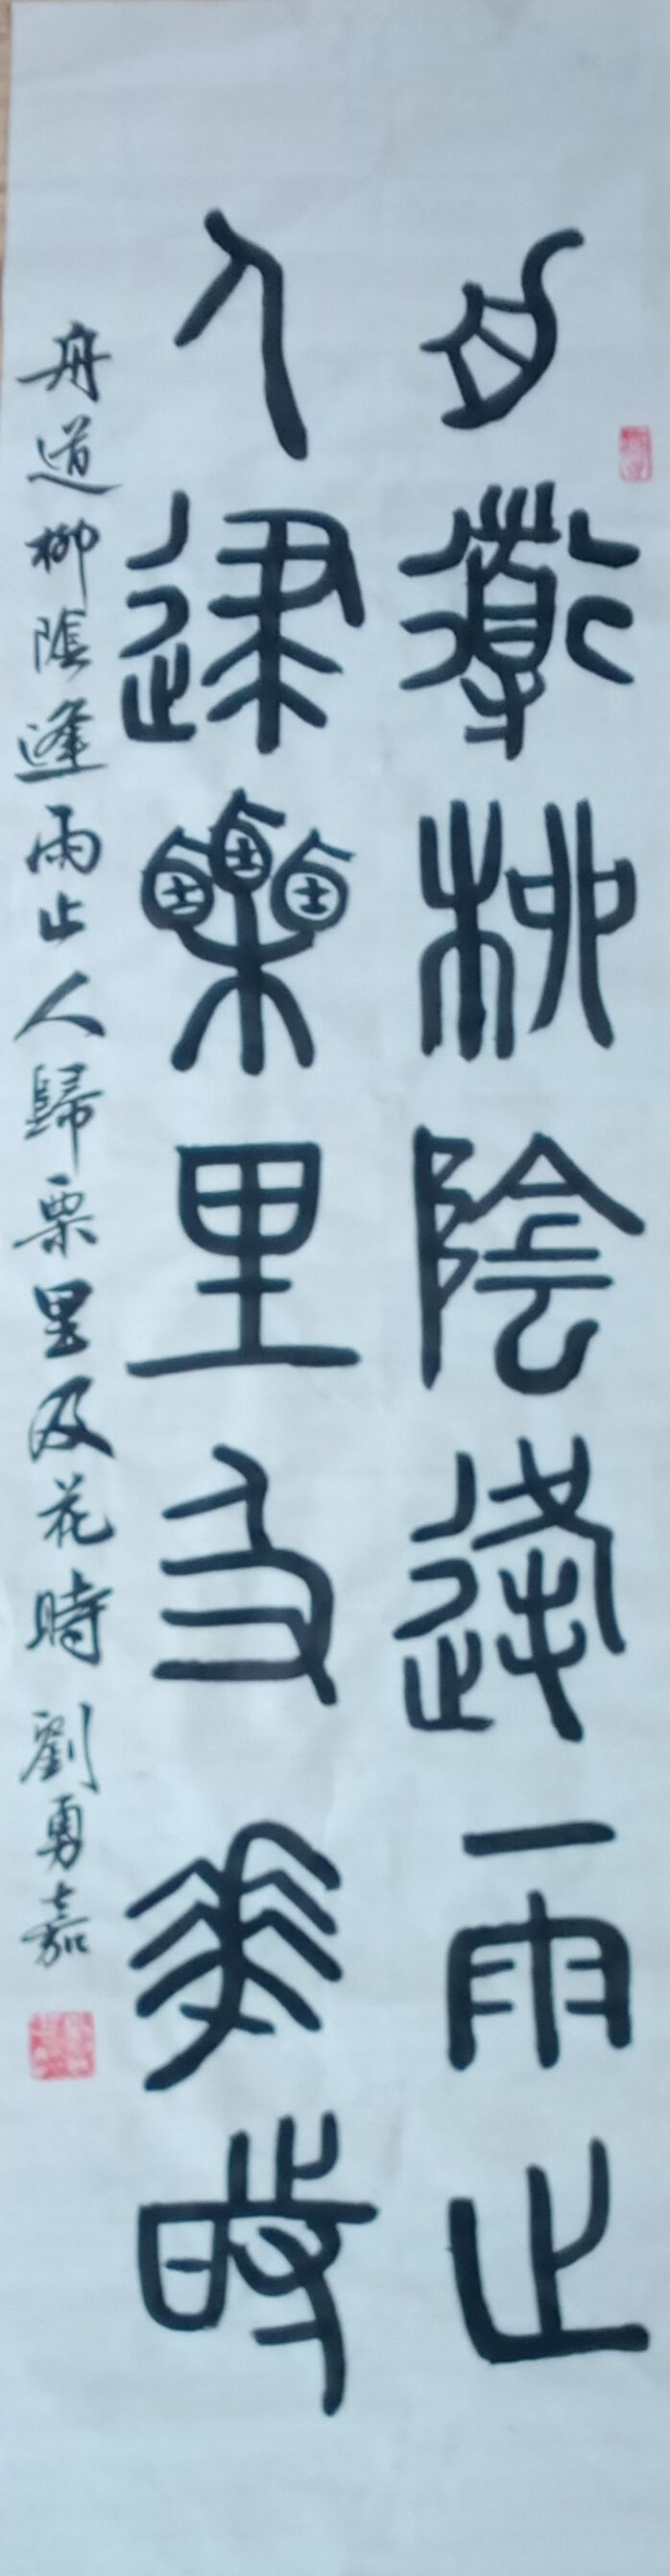 舟道柳陰逢雨止
人歸栗里及花時
舟道柳陰逢雨止人歸栗里及花時 劉勇嘉